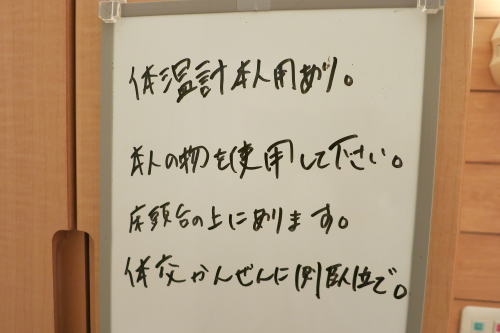 体温計本人用あり。
本人の物を使用して下さい。
床頭台の上にあります。
体交かんぜんに側臥位で。